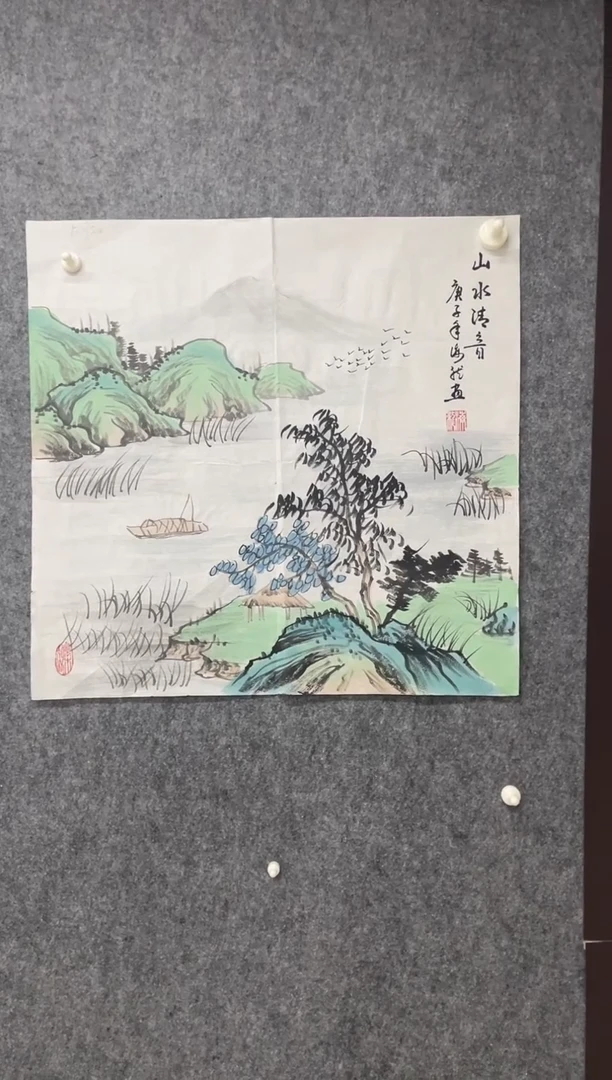 山水清音
庚子年海龙画